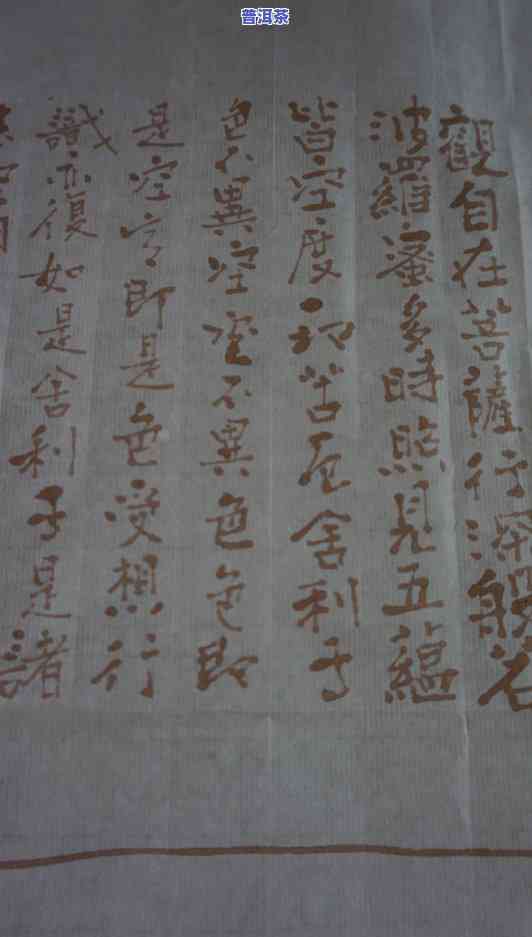 普洱茶
觀自在菩薩行深般若
波羅蜜多時照見五蘊
皆空度一切苦厄舍利子
色不異空空不異色色即
是空空即是色受想行
識亦復如是舍利子是諸